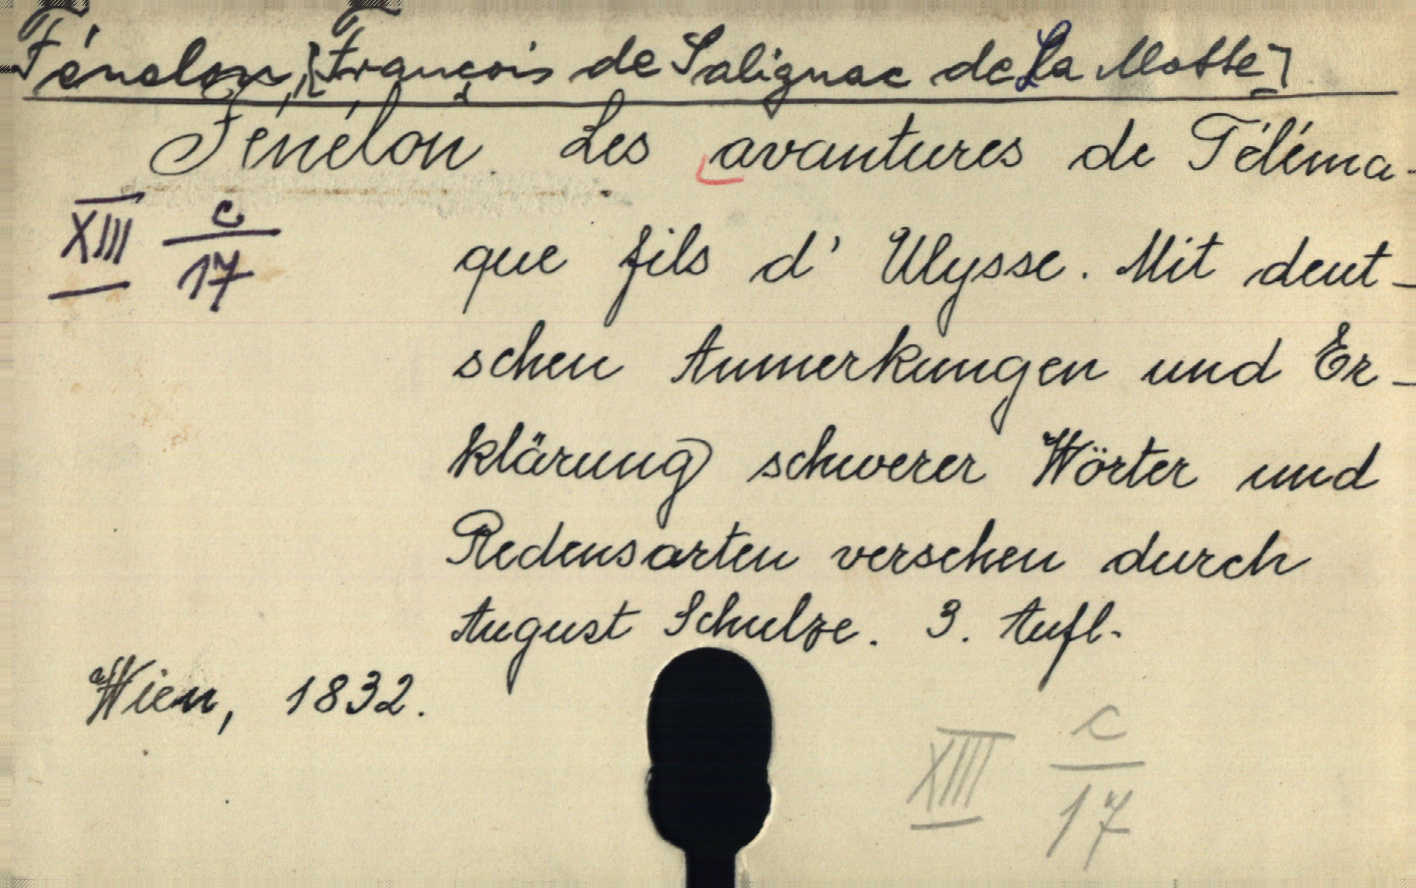 Fénelon, [François de Salignac de La Motte]
Fénélon. Les avantures de Téléma-
XIII c/17
que fils d' Ulysse. Mit deut-
schen Anmerkungen und Er-
klärung schwerer Wörter und
Redensarten versehen durch
August Schulze. 3. Aufl.
Wien, 1832.
XIII c/17